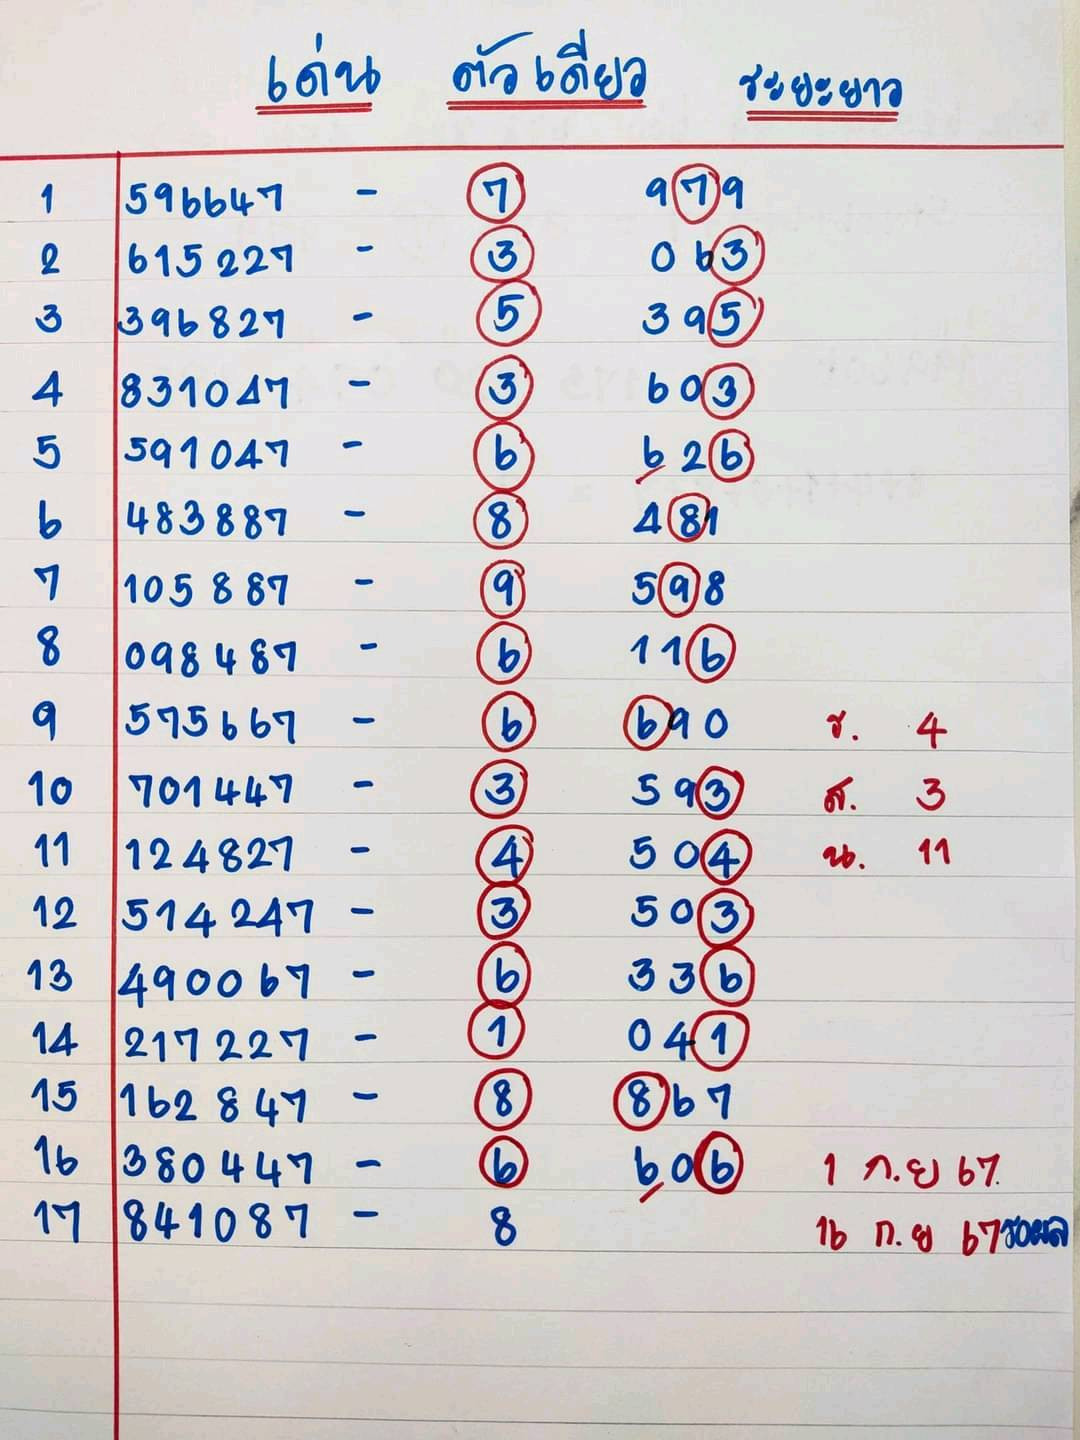 เด่น ตัวเดียว ระยะยาว
1 596647 - 7 979
2 615227 - 3 063
3 396827 - 5 395
4 831047 - 3 603
5 591047 - 6 626
6 483887 - 8 481
7 105887 - 9 598
8 098487 - 6 116
9 575667 - 6 690 ร. 4
10 701447 - 3 593 ส. 3
11 124827 - 4 504 น. 11
12 514247 - 3 503
13 490067 - 6 336
14 217227 - 1 041
15 162847 - 8 867
16 380447 - 6 606 1 ก.ย 67.
17 841087 - 8 16 ก.ย 67 รอผล